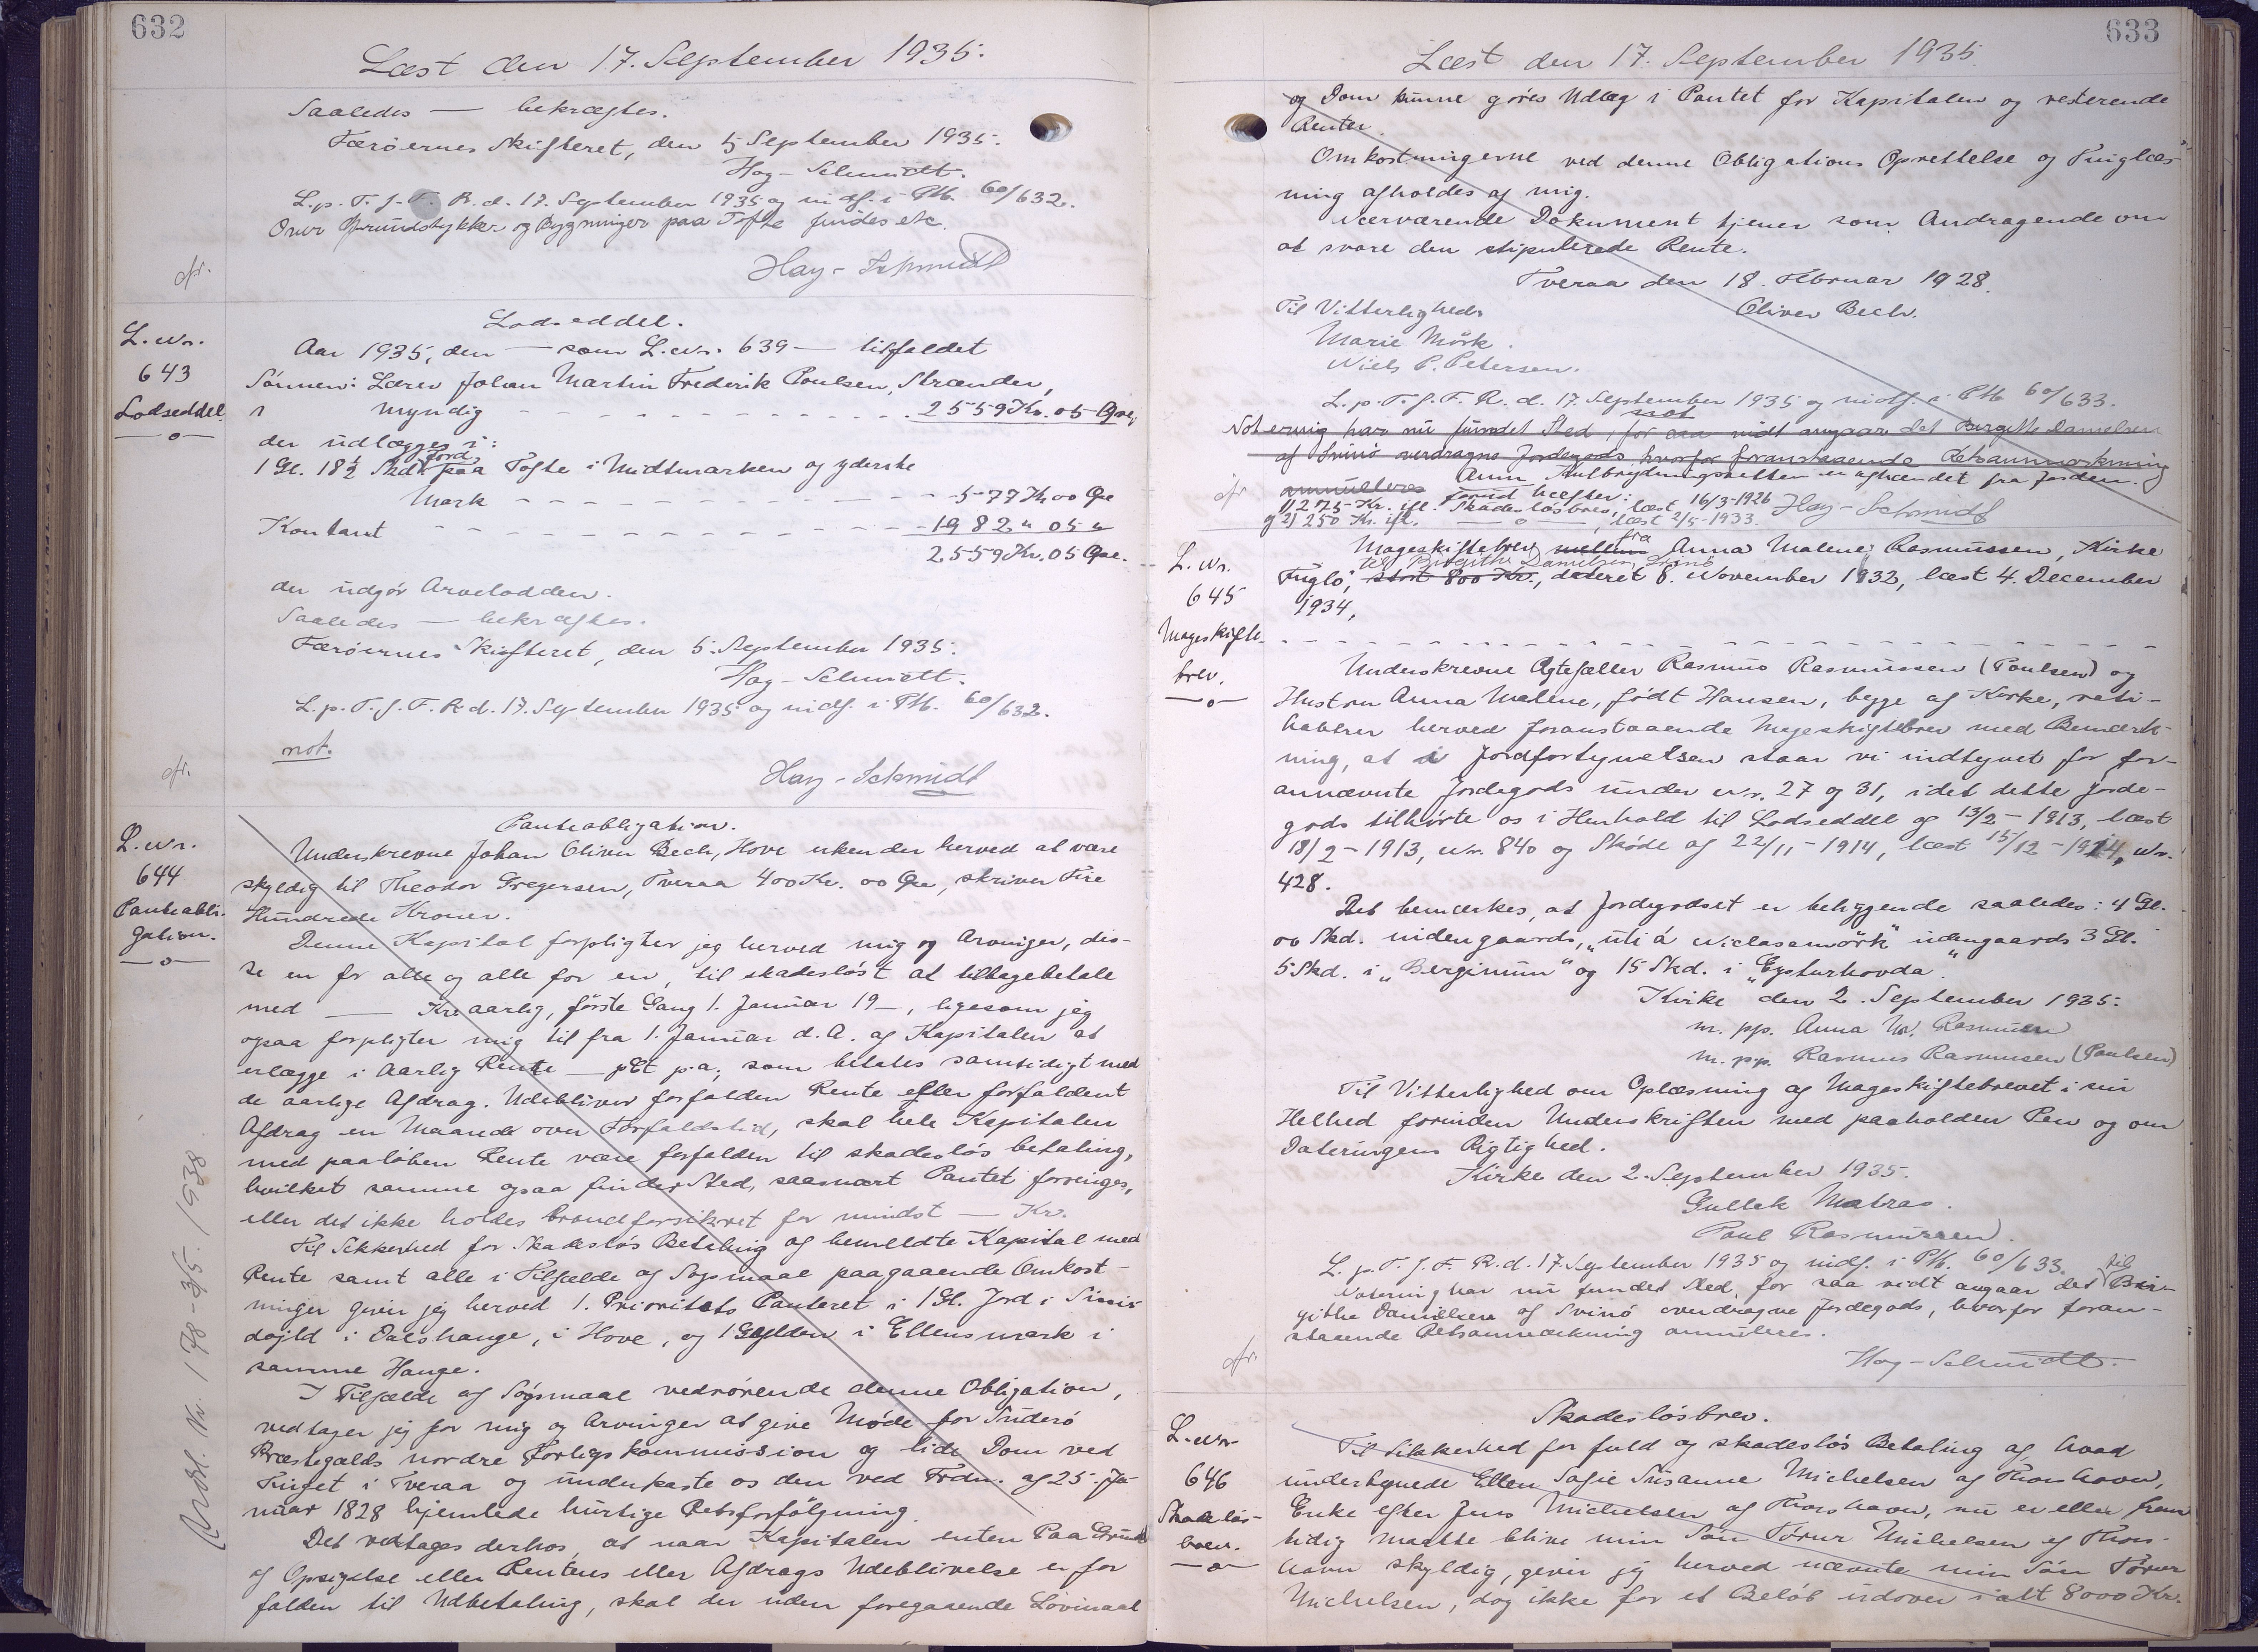 632
Læst den 17. September 1935.
Saaledes — bekræftes.
Færöernes Skifteret, den 5 September 1935.
Hay-Schmidt.
L.p.T.f.F.R.d. 17. September 1935 og indf. i Ptb. 60/632.
Over Grundstykker og Bygninger paa Tofte findes etc.
Hay-Schmidt
cfr.
L. Nr.
643
Lodseddel.
—o—
Lodseddel.
Aar 1935, den — som L. Nr. 639 — tilfaldet
Sönnen: Lærer Johan Martin Frederik Poulsen, Strænder,
myndig - - - - - - - - 2559 Kr. 05 Øre,
der udlægges i:
1 Gl. 18½ Skd. Jord paa Tofte i Midtmarken og yderste
Mark - - - - - - - - 577 Kr 00 Øre
Kontant - - - - - - - - 1982 " 05 "
2559 Kr. 05 Øre.
der udgör Arvelodden.
Saaledes — bekræftes.
Færöernes Skifteret, den 5. September 1935.
Hay-Schmidt.
L.p.T.f.F.R.d. 17. September 1935 og indf. i Ptb. 60/632.
not.
Hay-Schmidt
cfr.
L. Nr.
644
Panteobli-
gation.
—o—
Panteobligation.
Underskrevne Johan Oliver Bech, Hove erkender herved at være
skyldig til Theodor Gregersen, Tveraa 400 Kr. 00 Øre, skriver Fire
Hundrede Kroner.
Denne Kapital forpligter jeg herved mig og Arvinger, dis-
se en for alle og alle for en, til skadeslöst at tilbagebetale
med — Kr. aarlig, förste Gang 1. Januar 19—, ligesom jeg
ogsaa forpligter mig til fra 1. Januar d.A. af Kapitalen at
erlægge i Aarlig Rente — pCt p.a., som betales samtidigt med
de aarlige Afdrag. Udebliver forfalden Rente eller forfaldent
Afdrag en Maaned over Forfaldstid, skal hele Kapitalen
med paaløben Rente være forfalden til skadeslös betaling,
hvilket samme ogsaa finder Sted, saasnart Pantet forringes,
eller det ikke holdes brandforsikret for mindst — Kr.
Til Sikkerhed for Skadeslös Betaling af bemeldte Kapital med
Rente samt alle i Tilfælde af Sogsmaal paagaaende Omkost-
ninger giver jeg herved 1. Prioritets Panteret i 1 Gl. Jord i
i Dalshauge, i Hove, og 1 Gylden i Ellensmærk i
samme Hauge.
I Tilfælde af Sögsmaal vedrörende denne Obligation,
vedtager jeg for mig og Arvinger at give Möde for Suderö
Præstegælds nordre Forligskommission og lide Dom ved
Tinget i Tveraa og underkaste os den ved Frdn. af 25. Ja-
nuar 1828 hjemlede hurtige Retsforfölgning.
Det vedtages derhos, at naar Kapitalen enten Paa Grund
af Opsigelse eller Rentens eller Afdrags Udeblivelse er for
falden til Udbetaling, skal der uden foregaaende Lovmaal
Avdl. Nr. 178 - 3/5. 1938
633
Læst den 17. September 1935.
og Dom kunne göres Udlæg i Pantet for Kapitalen og resterende
Renter.
Omkostningerne ved denne Obligations Oprettelse og Tinglæs-
ning afholdes af mig.
Nærværende Dokument tjener som Andragende om
at svare den stipulerede Rente.
Tveraa den 18. Februar 1928.
Oliver Bech.
Til Vitterligheds
Marie Mörk.
Niels P. Petersen.
L.p.T.f.F.R.d. 17. September 1935 og indf. i Ptb 60/633.
not
Notering har nu fundet Sted, for saa vidt angaar det Birgithe Danielsen
af Svinö overdragne Jordegods hvorfor foranstaaende Retsanmærkning
annulleres Anm Hulbrydningsretten er afhændet fra Jorden.
forud hæfter:
1) 275 Kr. ifl. Skadeslösbrev, læst 16/3-1926
og 2) 250 Kr. ifl. —o—, læst 2/5-1933. Hay-Schmidt
cfr
L. Nr.
645
Mageskifte-
brev.
—o—
Mageskiftebrev mellem fra Anna Malene Rasmussen, Kirke
til Birgithe Danielsen, Svinö
Fuglö, stort 800 Kr., dateret 8. November 1932, læst 4. December
1934,
Underskrevne Ægtefæller Rasmus Rasmussen (Poulsen) og
Hustru Anna Malene, født Hansen, begge af Kirke, rati-
haberer herved foranstaaende Mageskiftebrev med Bemærk-
ning, at i Jordfortegnelsen staar vi indtegnet for for-
annævnte Jordegods under Nr. 27 og 31, idet dette Jorde-
gods tilhörte os i Henhold til Lodseddel af 13/2-1913, læst
18/2-1913, Nr. 840 og Sköde af 22/11-1914, læst 15/12-1914, Nr.
428.
Det bemærkes, at Jordegodset er beliggende saaledes: 4 Gl.
00 Skd. indengaards, "úti á Niclasamörk" udengaards 3 Gl.
5 Skd. i "Berginum" og 15 Skd. i "Eysturhovda".
Kirke den 2. September 1935.
m. pp. Anna M. Rasmusen
m. p.p. Rasmus Rasmusen (Poulsen)
Til Vitterlighed om Oplæsning af Mageskiftebrevet i sin
Helhed forinden Underskriften med paaholden Pen og om
Dateringens Rigtighed.
Kirke den 2. September 1935.
Gullak Matras.
Poul Rasmussen.
L.p.T.f.F.R.d. 17. September 1935 og indf. i Ptb. 60/633.
Notering har nu fundet Sted, for saa vidt angaar det til Bir-
githe Danielsen af Svinö overdragne Jordegods, hvorfor foran-
staaende Retsanmærkning annulleres.
Hay-Schmidt.
cfr.
L. Nr
646
Skadeslös-
brev.
—o—
Skadeslösbrev.
Til Sikkerhed for fuld og skadeslös Betaling af hvad
undertegnede Ellen Sofie Susanne Michelsen af Thorshavn,
Enke efter Jens Michelsen af Thorshavn, nu er eller frem
tidig maatte blive min Sön Tórur Michelsen af Thors-
havn skyldig, giver jeg herved nævnte min Sön Tórur
Michelsen, dog ikke for et Belöb udover ialt 8000 Kr.